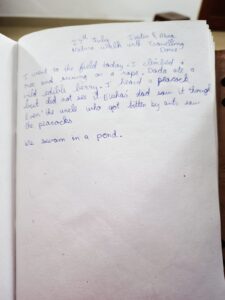 7th July
Nature walk with Travelling
Dome
I went to the field today. I climbed a
tree and swung on a rope. Dada ate a
wild edible berry. I heard a peacock
but did not see it. dad saw it though
Even the uncle who got bitten by ants saw
the peacocks
We swam in a pond.